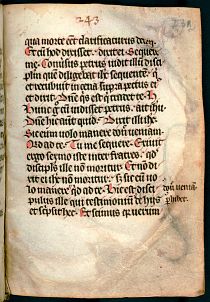 243
qua morte eēt clarificaturus deuȝ.
Et cū hoc dixisset: dicit ei. Sequere
me. Conuersus petrus uidit illū disci
pulū quē diligebat ih̄c sequentē. qͥ
et recubuit in cena supra pectus eiꝰ
et dixit. Dn̄e quis est qui tradet te.
Hunc ergo cū uidisset petrus. ait ih̄u
Dn̄e hic autē quid. Dixit illi ih̄c.
Sic eum uolo manere donec ueniam.
Quid ad te. Tu me sequere. Exiuit
ergo sermo iste inter fratres. qꝫ
discipulꝰ ille nō moritur. Et nō di
xit ei ih̄c nō moritur. Sꝫ sic eū uo
lo manere quid ad te. Hic est disci
pulus ille qui testimoniū de hijs
et scripsit hec. Et scimus qꝛ uerum